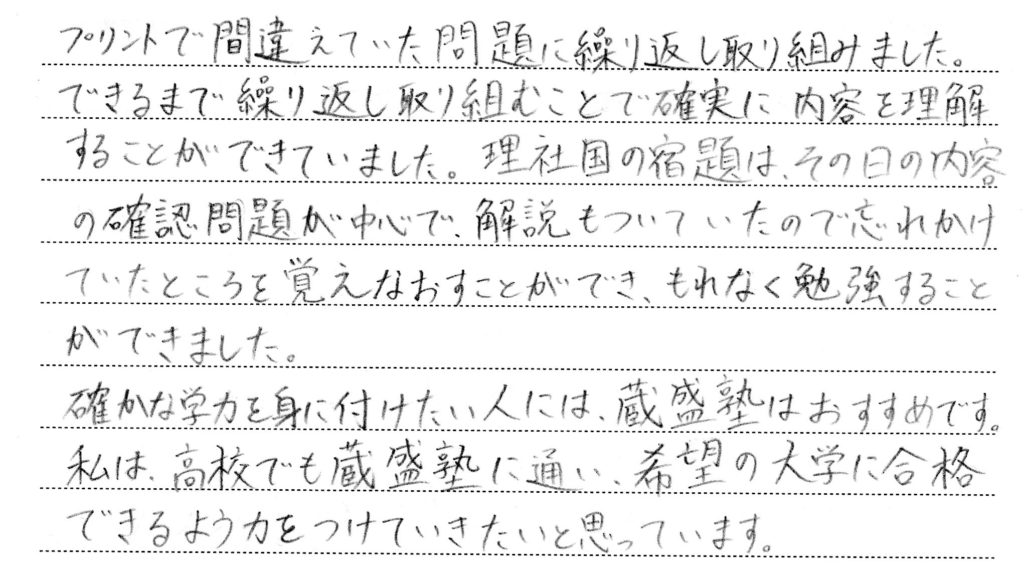 プリントで間違えていた問題に繰り返し取り組みました。
できるまで繰り返し取り組むことで確実に内容を理解
することができていました。理社国の宿題は、その日の内容
の確認問題が中心で、解説もついていたので忘れかけ
ていたところを覚えなおすことができ、もれなく勉強すること
ができました。
確かな学力を身に付けたい人には、蔵盛塾はおすすめです。
私は、高校でも蔵盛塾に通い、希望の大学に合格
できるよう力をつけていきたいと思っています。